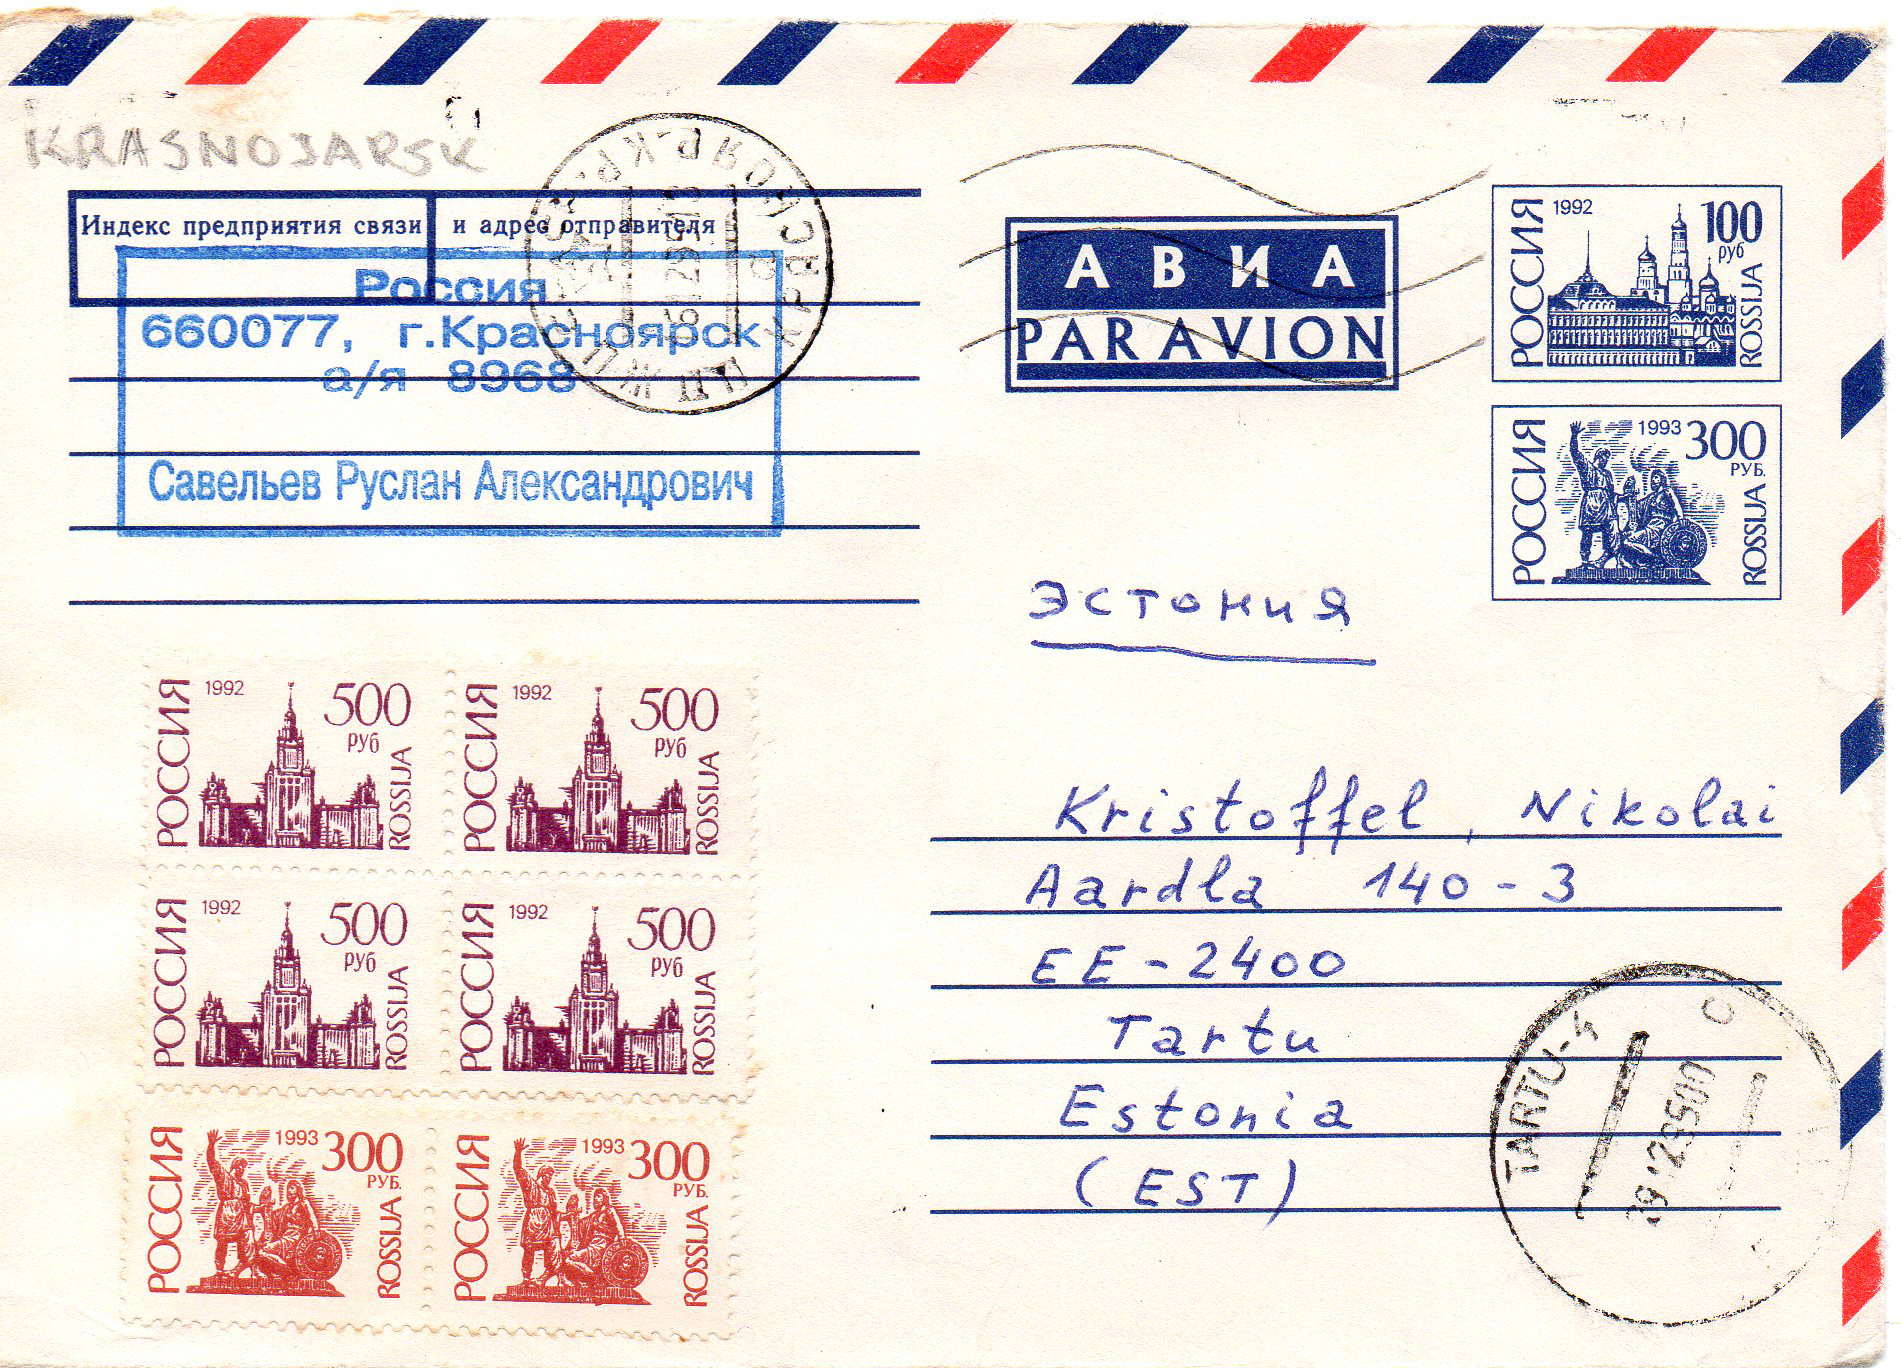 KRASNOJARSK
Индекс предприятия связи и адрес отправителя
Россия
660077, г.Красноярск
а/я 8968
Савельев Руслан Александрович
АВИА
PAR AVION
РОССИЯ 1992 100 руб ROSSIJA
РОССИЯ 1993 300 РУБ. ROSSIJA
Эстония
РОССИЯ 1992 500 руб ROSSIJA
РОССИЯ 1992 500 руб ROSSIJA
РОССИЯ 1992 500 руб ROSSIJA
РОССИЯ 1992 500 руб ROSSIJA
РОССИЯ 1993 300 РУБ. ROSSIJA
РОССИЯ 1993 300 РУБ. ROSSIJA
Kristoffel, Nikolai
Aardla 140-3
EE-2400
Tartu
Estonia
(EST)
TARTU-4
C